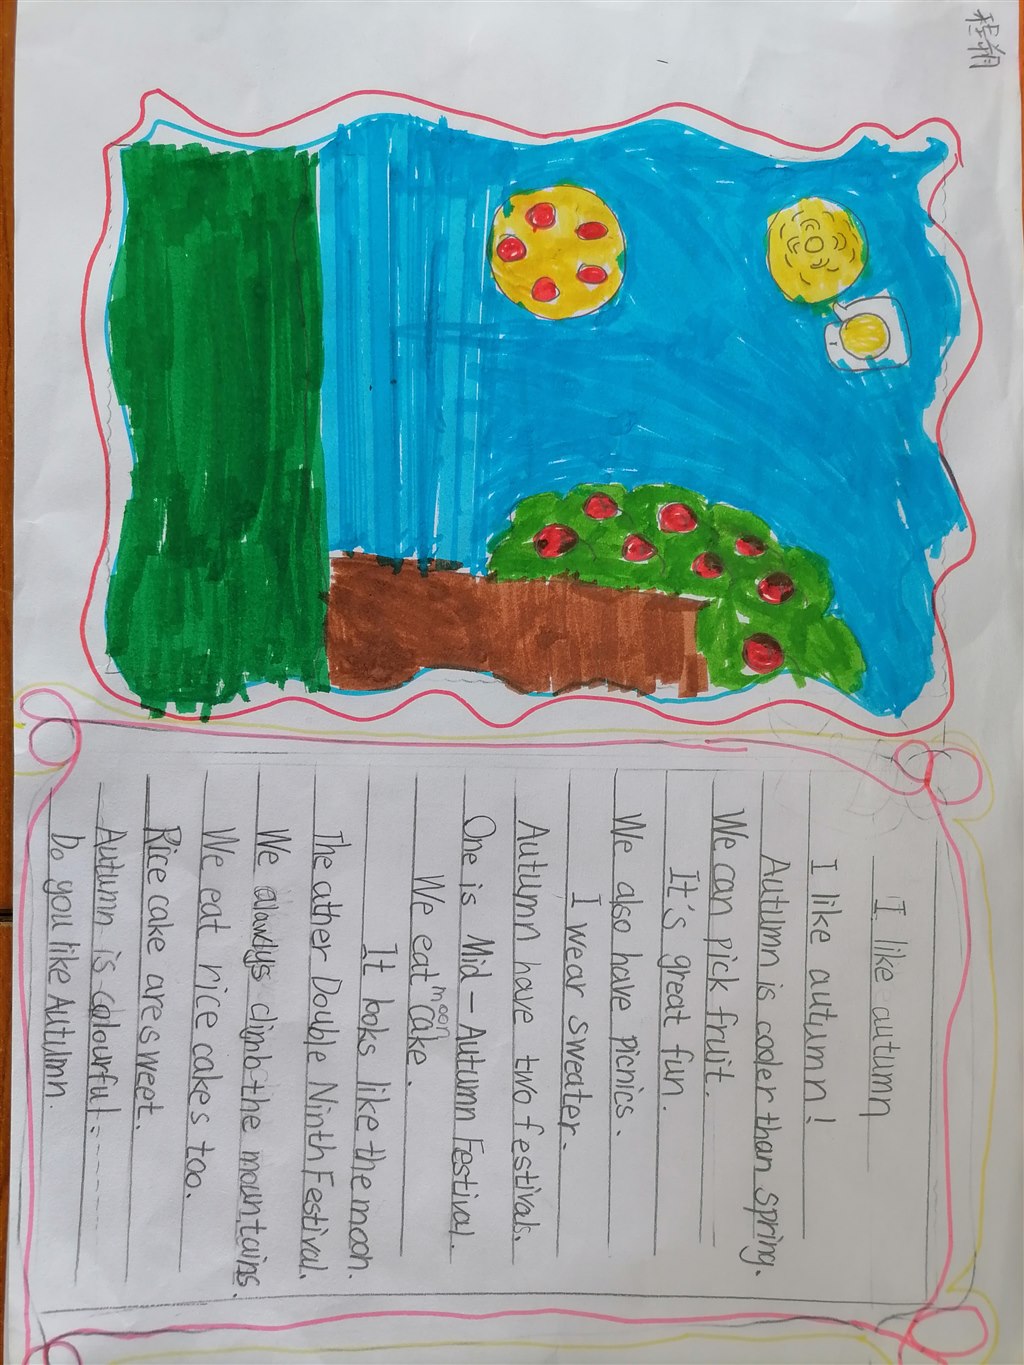 程朔
I like autumn
I like autumn!
Autumn is cooler than spring.
We can pick fruit.
It's great fun.
We also have picnics.
I wear sweater.
Autumn have two festivals.
One is Mid-Autumn Festival.
We eat moon cake.
It looks like the moon.
The ather Double Ninth Festival.
We alawdys climb the mountains.
We eat rice cakes too.
Rice cake are sweet.
Autumn is colourful.------
Do you like Autumn.